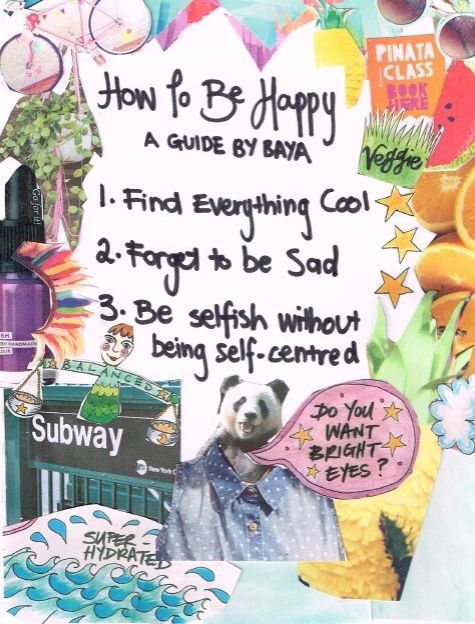 How To Be Happy
A GUIDE BY BAYA
PINATA
CLASS
BOOK
HERE
Veggie
1. Find Everything Cool
2. Forget to be Sad
3. Be selfish without
being self-centred
Go for it!
BALANCED
Subway
New York C
DO YOU
WANT
BRIGHT
EYES?
SUPER-
HYDRATED